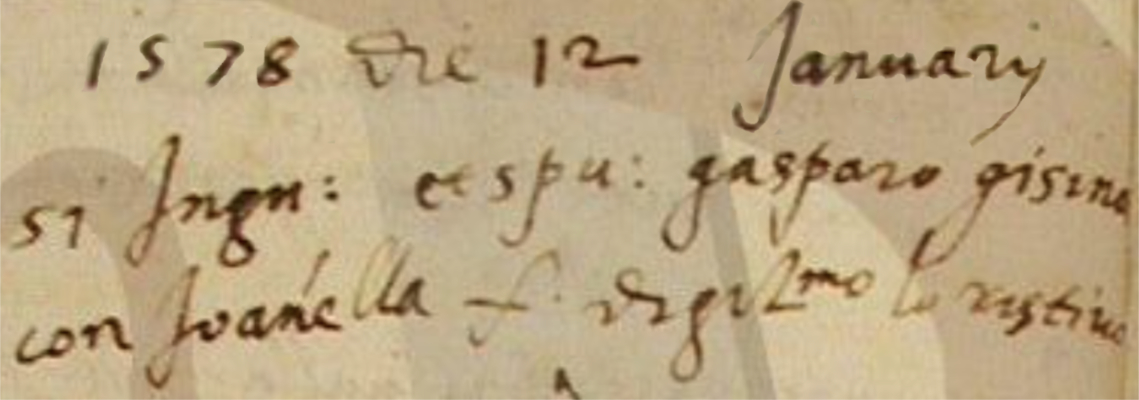 1578 die 12 Januarij
si Ingu: et spu: gasparo gisina
con Joanella f. di gulmo lo restivo